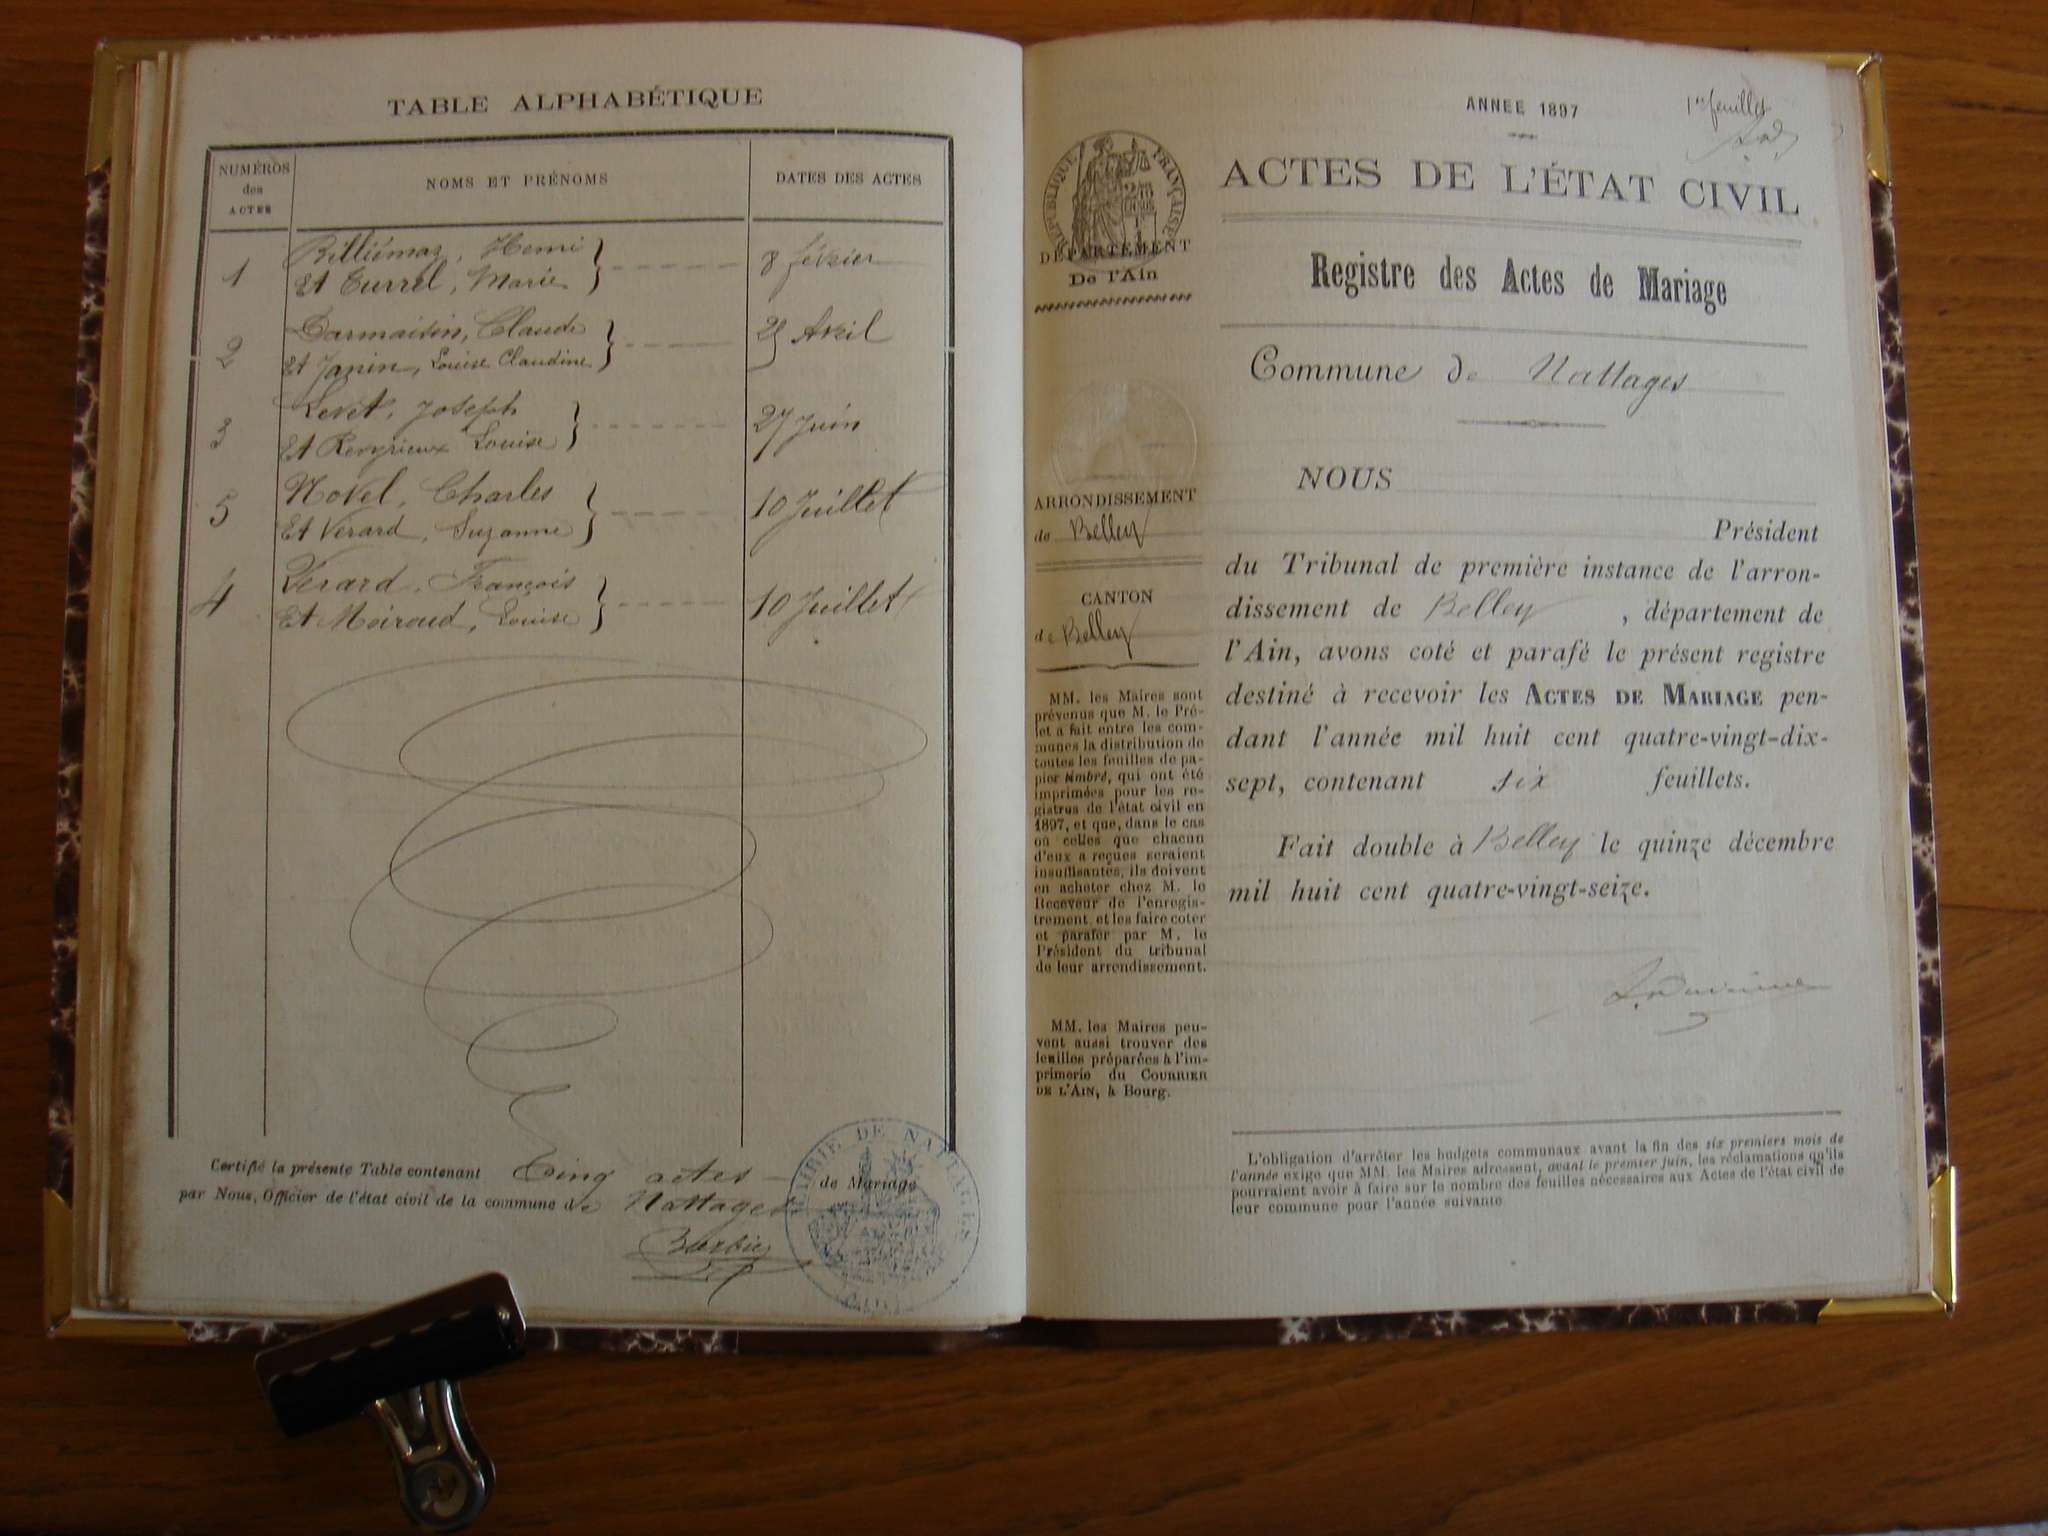 TABLE ALPHABÉTIQUE
NUMÉROS
des
ACTES
NOMS ET PRÉNOMS
DATES DES ACTES
1
Billiémaz, Henri
Et Turrel, Marie
8 février
2
Darmaisin, Claude
Et Janin, Louise Claudine
25 Avril
3
Levet, Joseph
Et Reveyrieux Louise
27 Juin
5
Novel, Charles
Et Vérard, Suzanne
10 Juillet
4
Vérard, François
Et Moiroud, Louise
10 Juillet
Certifié la présente Table contenant Cinq actes de Mariage
par Nous, Officier de l'état civil de la commune de Nattages
Barbier
MAIRIE DE NATTAGES
ANNEE 1897
1er feuillet
RÉPUBLIQUE FRANÇAISE
DÉPARTEMENT
De l'Ain
ACTES DE L'ÉTAT CIVIL
Registre des Actes de Mariage
Commune de Nattages
ARRONDISSEMENT
de Belley
CANTON
de Belley
MM. les Maires sont
prévenus que M. le Pré-
fet a fait entre les com-
munes la distribution de
toutes les feuilles de pa-
pier timbré, qui ont été
imprimées pour les re-
gistres de l'état civil en
1897, et que, dans le cas
où celles que chacun
d'eux a reçues seraient
insuffisantes, ils doivent
en acheter chez M. le
Receveur de l'enregis-
trement, et les faire coter
et parafer par M. le
Président du tribunal
de leur arrondissement.
MM. les Maires peu-
vent aussi trouver des
feuilles préparées à l'im-
primerie du COURRIER
DE L'AIN, à Bourg.
NOUS
Président
du Tribunal de première instance de l'arron-
dissement de Belley, département de
l'Ain, avons coté et parafé le présent registre
destiné à recevoir les ACTES DE MARIAGE pen-
dant l'année mil huit cent quatre-vingt-dix-
sept, contenant six feuillets.
Fait double à Belley le quinze décembre
mil huit cent quatre-vingt-seize.
L'obligation d'arrêter les budgets communaux avant la fin des six premiers mois de
l'année exige que MM. les Maires adressent, avant le premier juin, les réclamations qu'ils
pourraient avoir à faire sur le nombre des feuilles nécessaires aux Actes de l'état civil de
leur commune pour l'année suivante